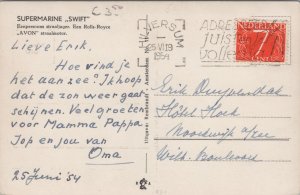 SUPERMARINE „SWIFT"
Eenpersoons straaljager. Een Rolls-Royce
„AVON" straalmotor.
C 350
HILVERSUM
1
25 VI 13
1954
ADRES
JUIST
VOLLE
NEDERLAND
7
Lieve Erik.
Hoe vind je
het aanzee? Ik hoop
dat de zee weer gaat
schijnen. Veel groeten
voor Mamma Pappa
Jop en jou van
Oma
25 Juni '54
Erik Duyvendak
Hôtel Hoek
Noordwijk a/zee
Wilh. Boulevard